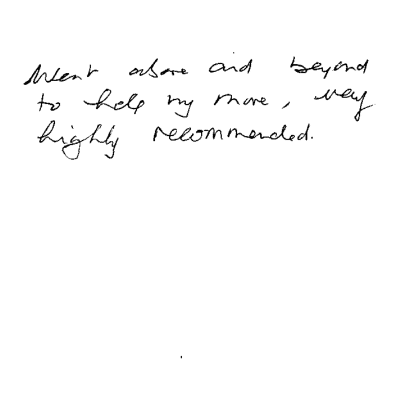 Went above and beyond
to help my move, very
highly recommended.